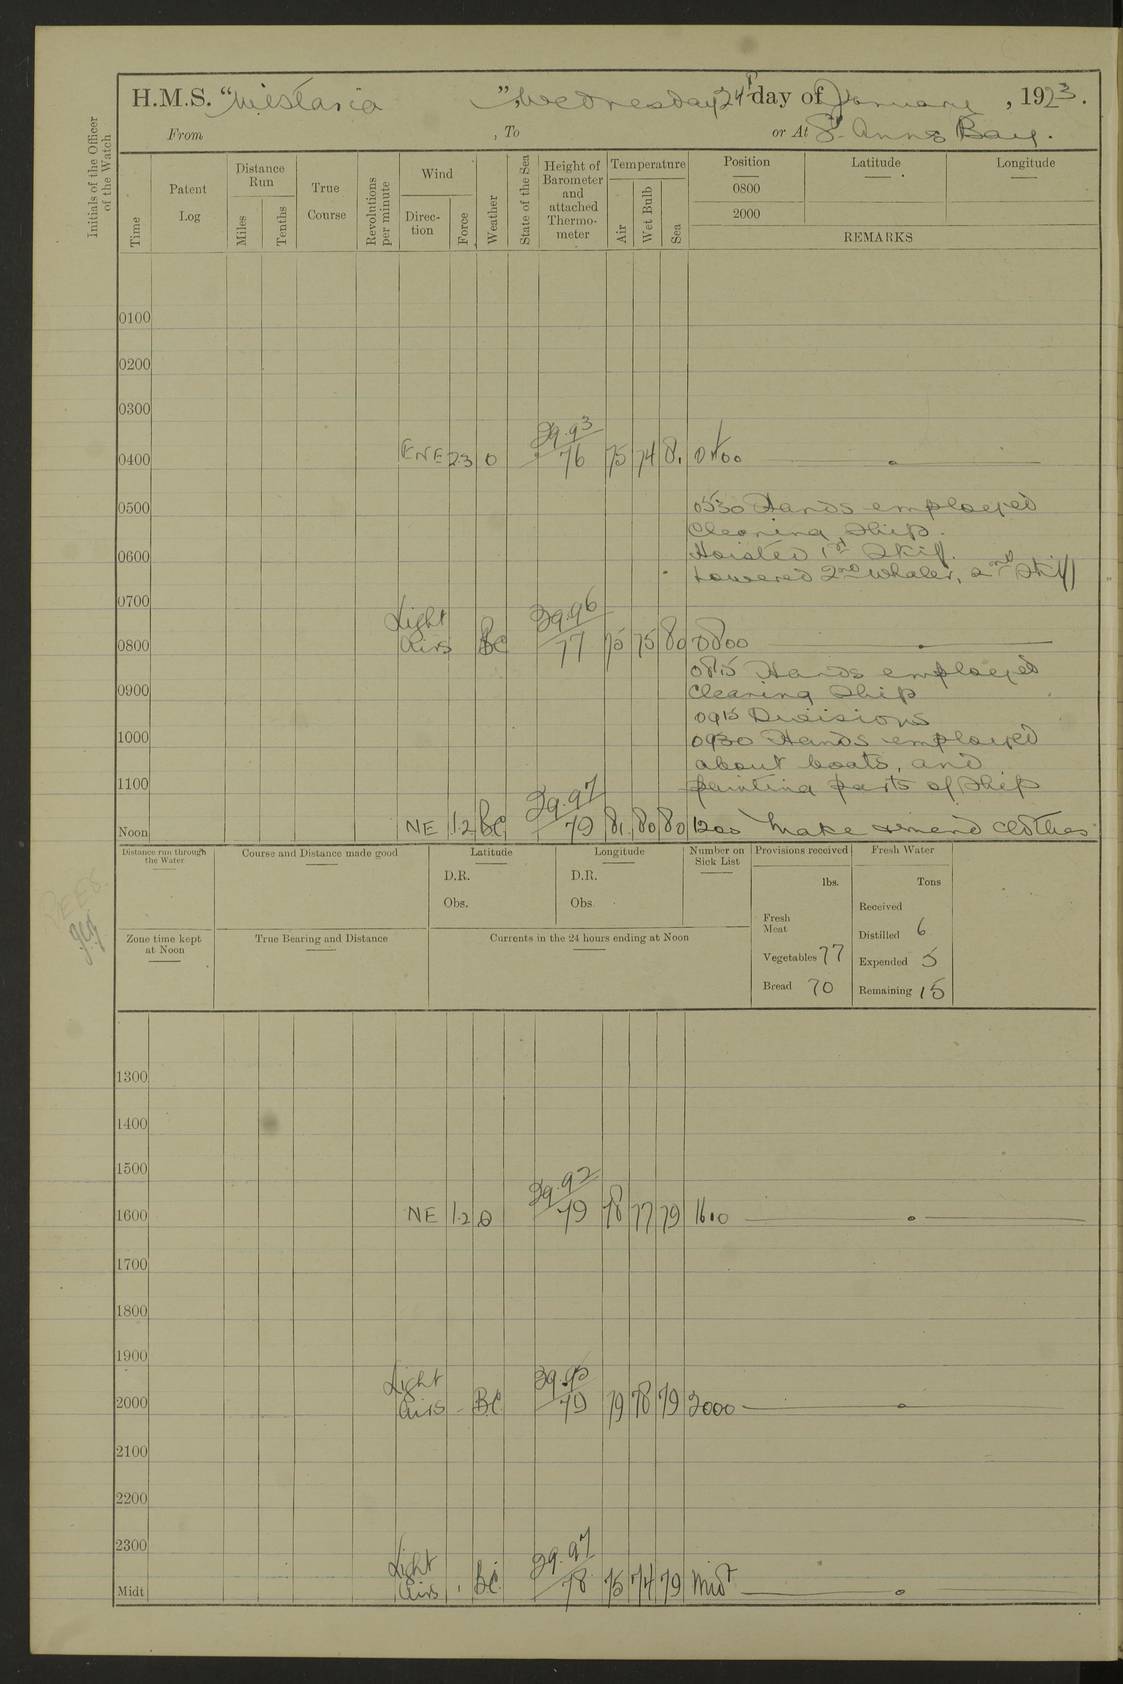 H.M.S. "Wistaria", Wednesday 24th day of January, 1923.
From , To or At St. Anns Bay.
Initials of the Officer of the Watch
Time Patent Log Distance Run Miles Tenths True Course Revolutions per minute Wind Direc-tion Force Weather State of the Sea Height of Barometer and attached Thermo-meter Temperature Air Wet Bulb Sea Position Latitude Longitude
0800
2000
REMARKS
0100
0200
0300
0400 ENE 2.3 O 29.93 76 75 74 81 0400
0500 0530 Hands employed
Cleaning Ship.
0600 Hoisted 1st Skiff.
Lowered 2nd Whaler, 2nd Skiff
0700
0800 Light Airs BC 29.96 77 75 75 80 0800
0815 Hands employed
0900 Cleaning Ship
0915 Divisions
1000 0930 Hands employed
about boats, and
1100 painting parts of Ship
Noon NE 1.2 BC 29.97 79 81 80 80 1200 Make & mend clothes
Distance run through the Water Course and Distance made good Latitude Longitude Number on Sick List Provisions received Fresh Water
D.R. D.R. lbs. Tons
Obs. Obs. Received
Fresh Meat Distilled 6
Zone time kept at Noon True Bearing and Distance Currents in the 24 hours ending at Noon
Vegetables 77 Expended 5
Bread 70 Remaining 15
1300
1400
1500
1600 NE 1.2 O 29.92 79 78 77 79 1600
1700
1800
1900
2000 Light Airs - BC 29.95 79 79 78 79 2000
2100
2200
2300
Midt Light Airs BC 29.97 78 75 74 79 Midt